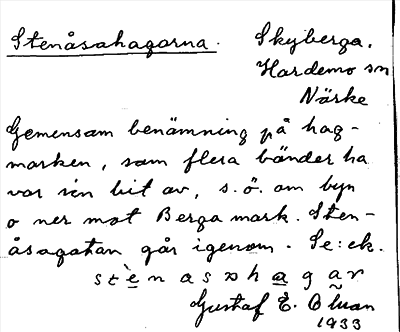 Stenåsahagarna. Skyberga.
Hardemo sn
Närke
Gemensam benämning på hag-
marken, som flera bönder ha
var sin bit av, s.ö. om byn
o ner mot Berga mark. Sten-
åsagatan går igenom. Se: ek.
Gustaf E.
1933